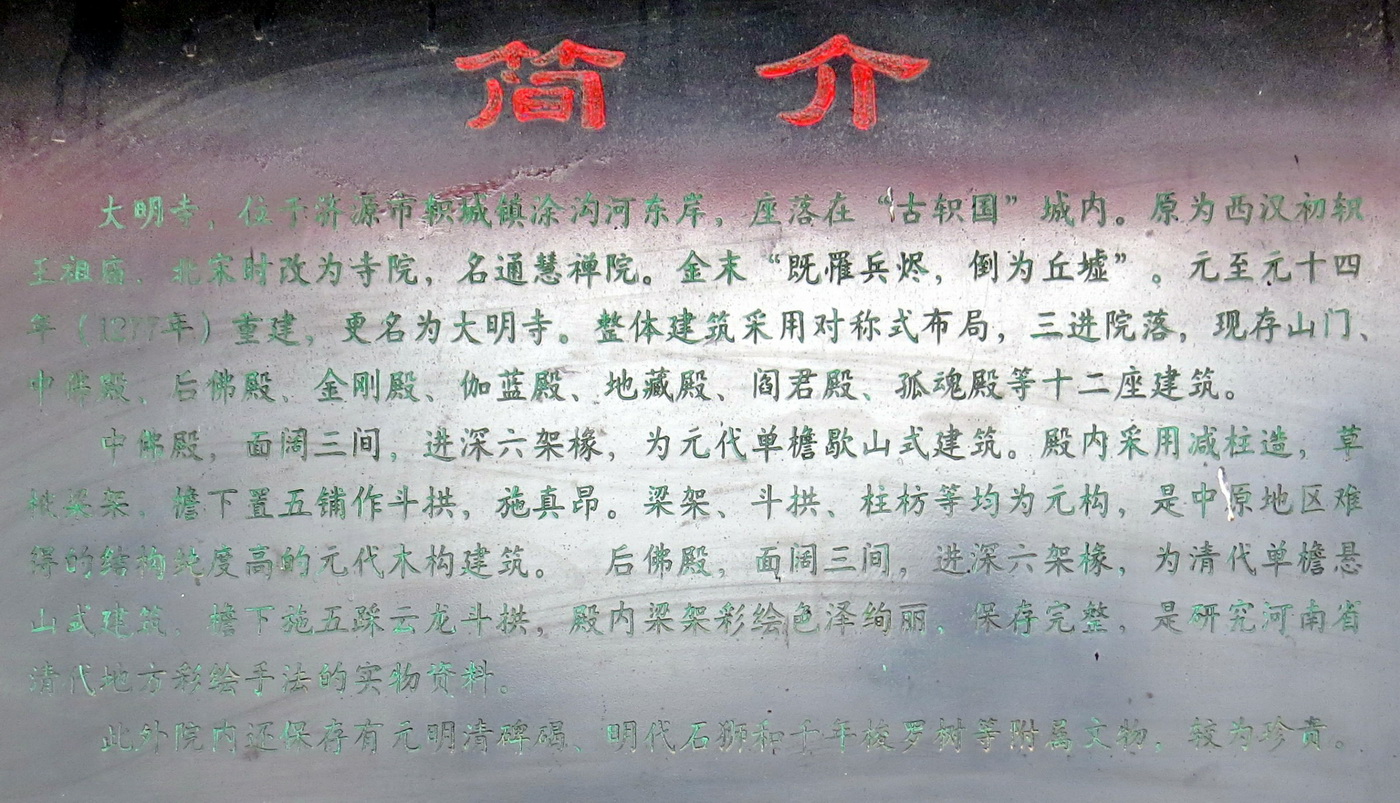 简介
大明寺，位于济源市轵城镇涂沟河东岸，座落在“古轵国”城内。原为西汉初轵
王祖庙、北宋时改为寺院，名通慧禅院。金末“既罹兵烬，倒为丘墟”。元至元十四
年（1277年）重建，更名为大明寺。整体建筑采用对称式布局，三进院落，现存山门、
中佛殿、后佛殿、金刚殿、伽蓝殿、地藏殿、阎君殿、孤魂殿等十二座建筑。
中佛殿，面阔三间，进深六架椽，为元代单檐歇山式建筑。殿内采用减柱造，草
栿梁架，檐下置五铺作斗拱，施真昂。梁架、斗拱、柱枋等均为元构，是中原地区难
得的结构纯度高的元代木构建筑。 后佛殿，面阔三间，进深六架椽，为清代单檐悬
山式建筑，檐下施五踩云龙斗拱，殿内梁架彩绘色泽绚丽，保存完整，是研究河南省
清代地方彩绘手法的实物资料。
此外院内还保存有元明清碑碣、明代石狮和千年桫罗树等附属文物，较为珍贵。